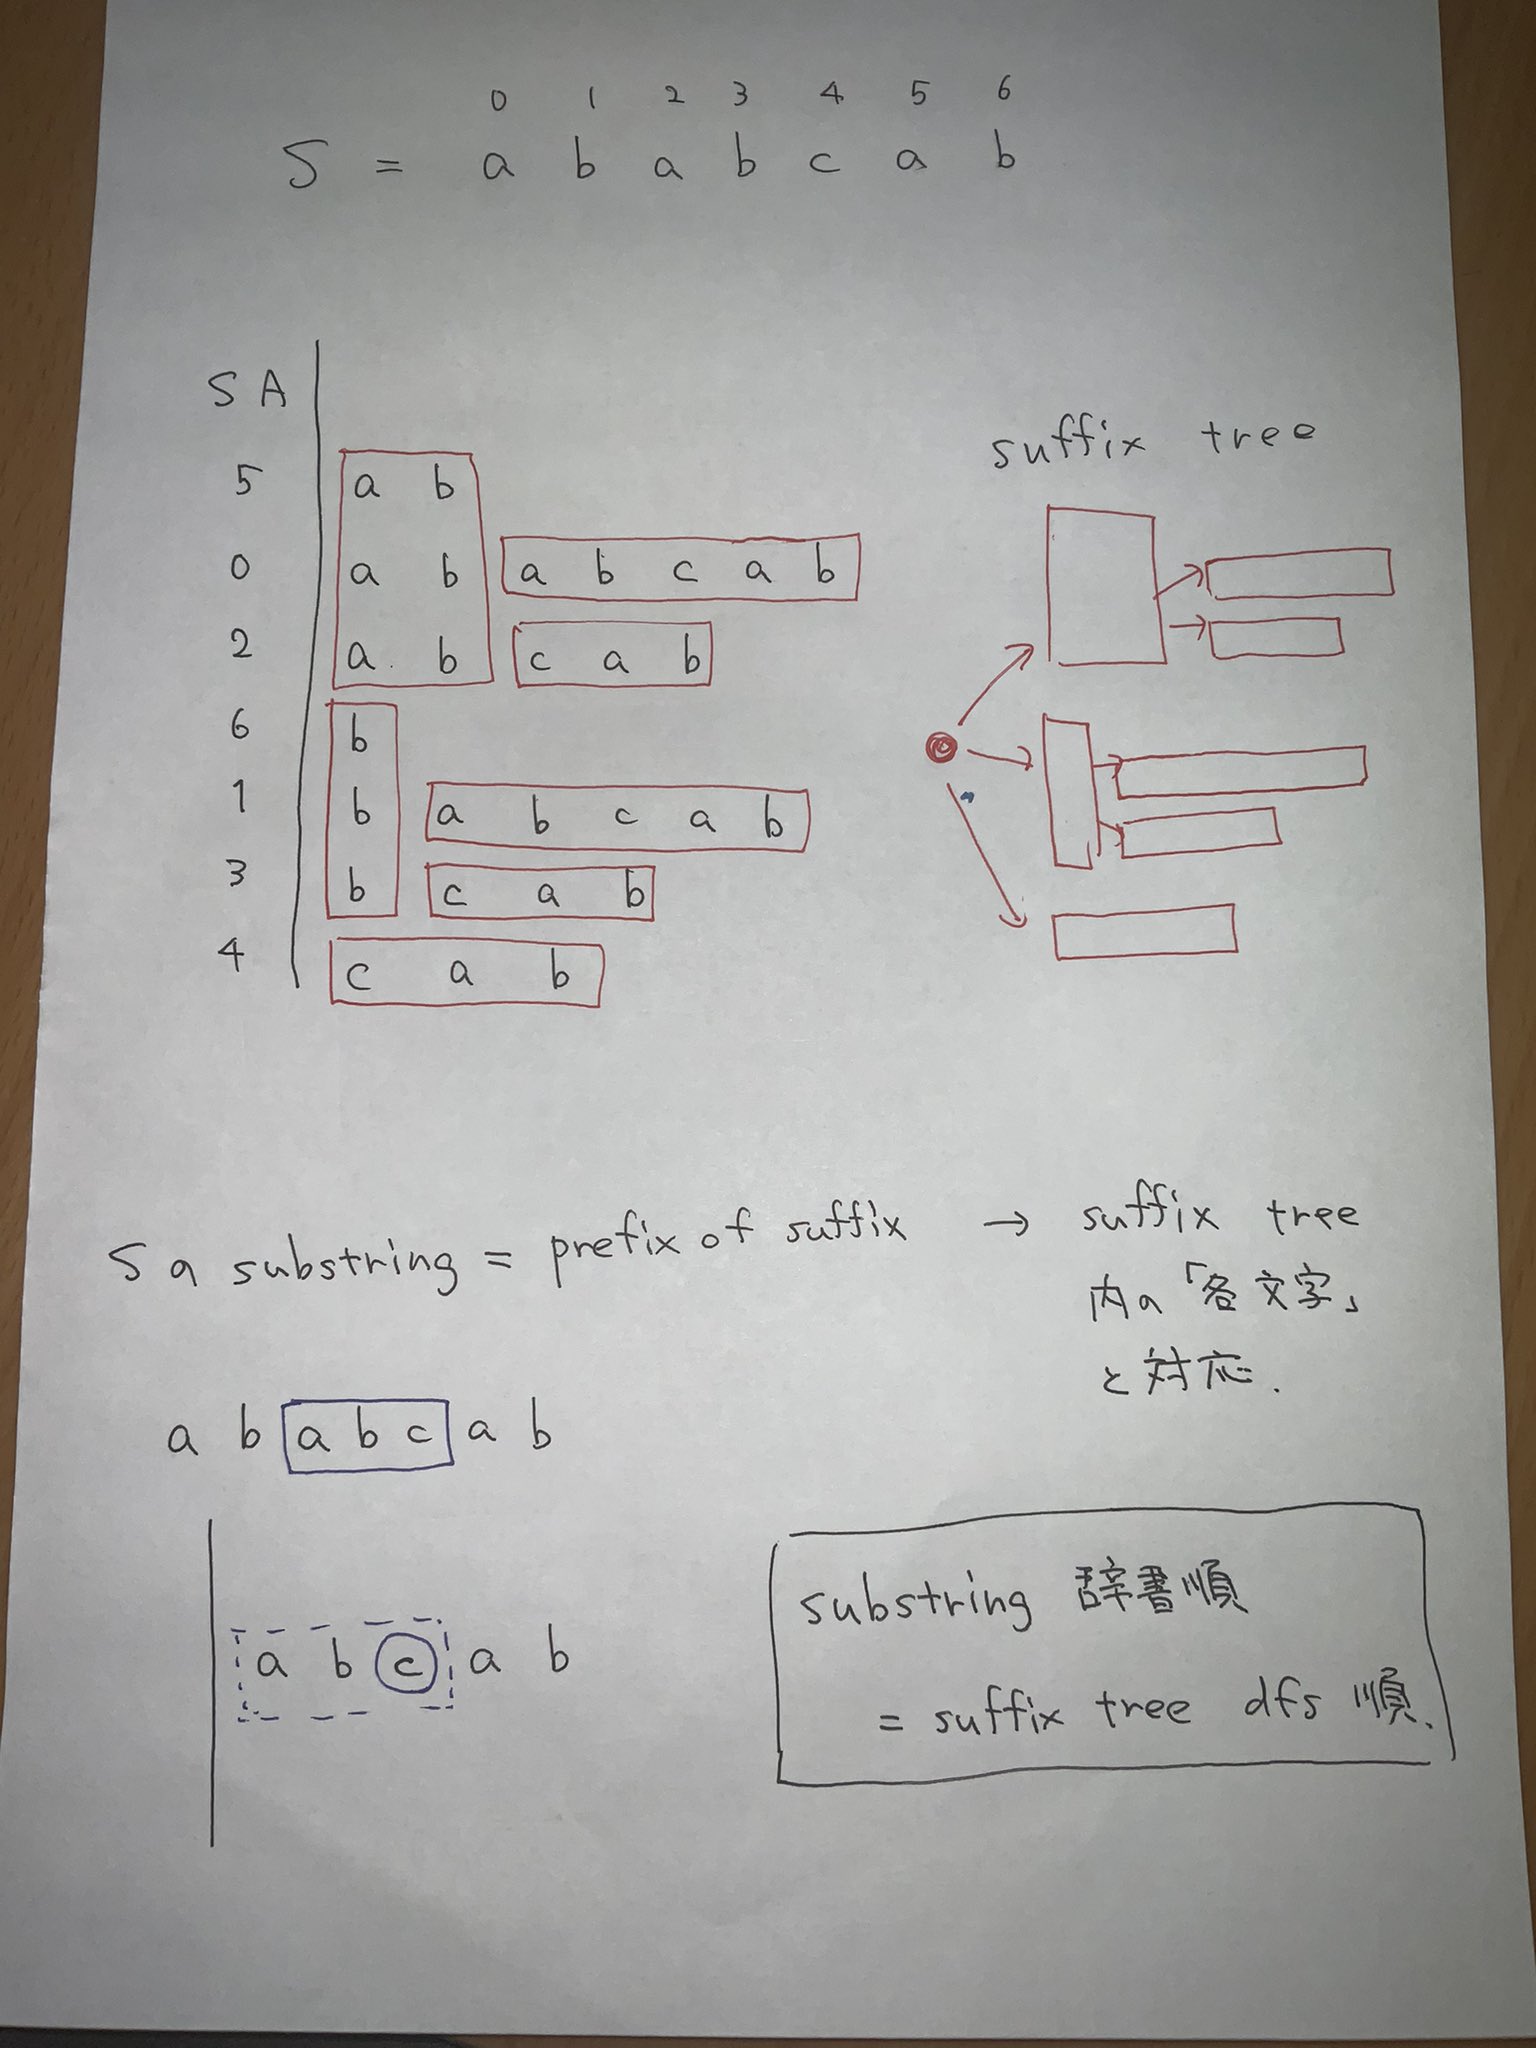 0 1 2 3 4 5 6
S = a b a b c a b
SA
suffix tree
5 a b
0 a b a b c a b
2 a b c a b
6 b
1 b a b c a b
3 b c a b
4 c a b
S の substring = prefix of suffix → suffix tree
内の「各文字」
と対応.
a b a b c a b
a b c a b
substring 辞書順
= suffix tree dfs 順.